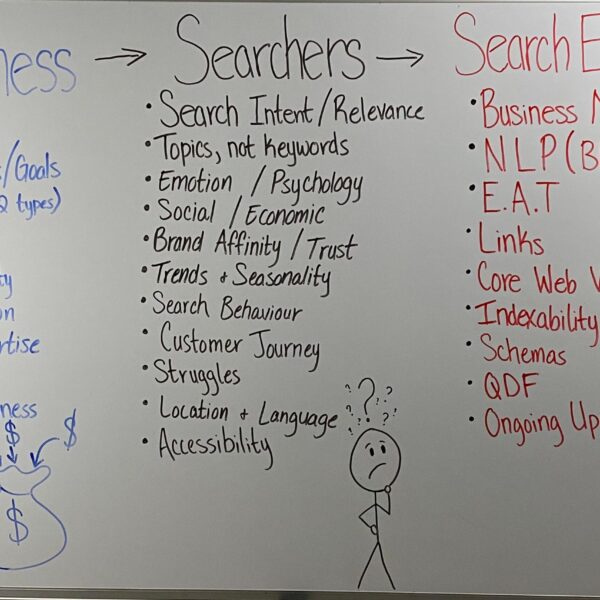 ness → Searchers → Search E
• Search Intent / Relevance
• Topics, not keywords
• Emotion / Psychology
• Social / Economic
• Brand Affinity / Trust
• Trends + Seasonality
• Search Behaviour
• Customer Journey
• Struggles
• Location + Language
• Accessibility
/Goals
2 types)
ty
on
rtise
ness
$
$
$
? ? ? ? ? ? ?
• Business M
• NLP (B
• E.A.T
• Links
• Core Web V
• Indexability
• Schemas
• QDF
• Ongoing Up